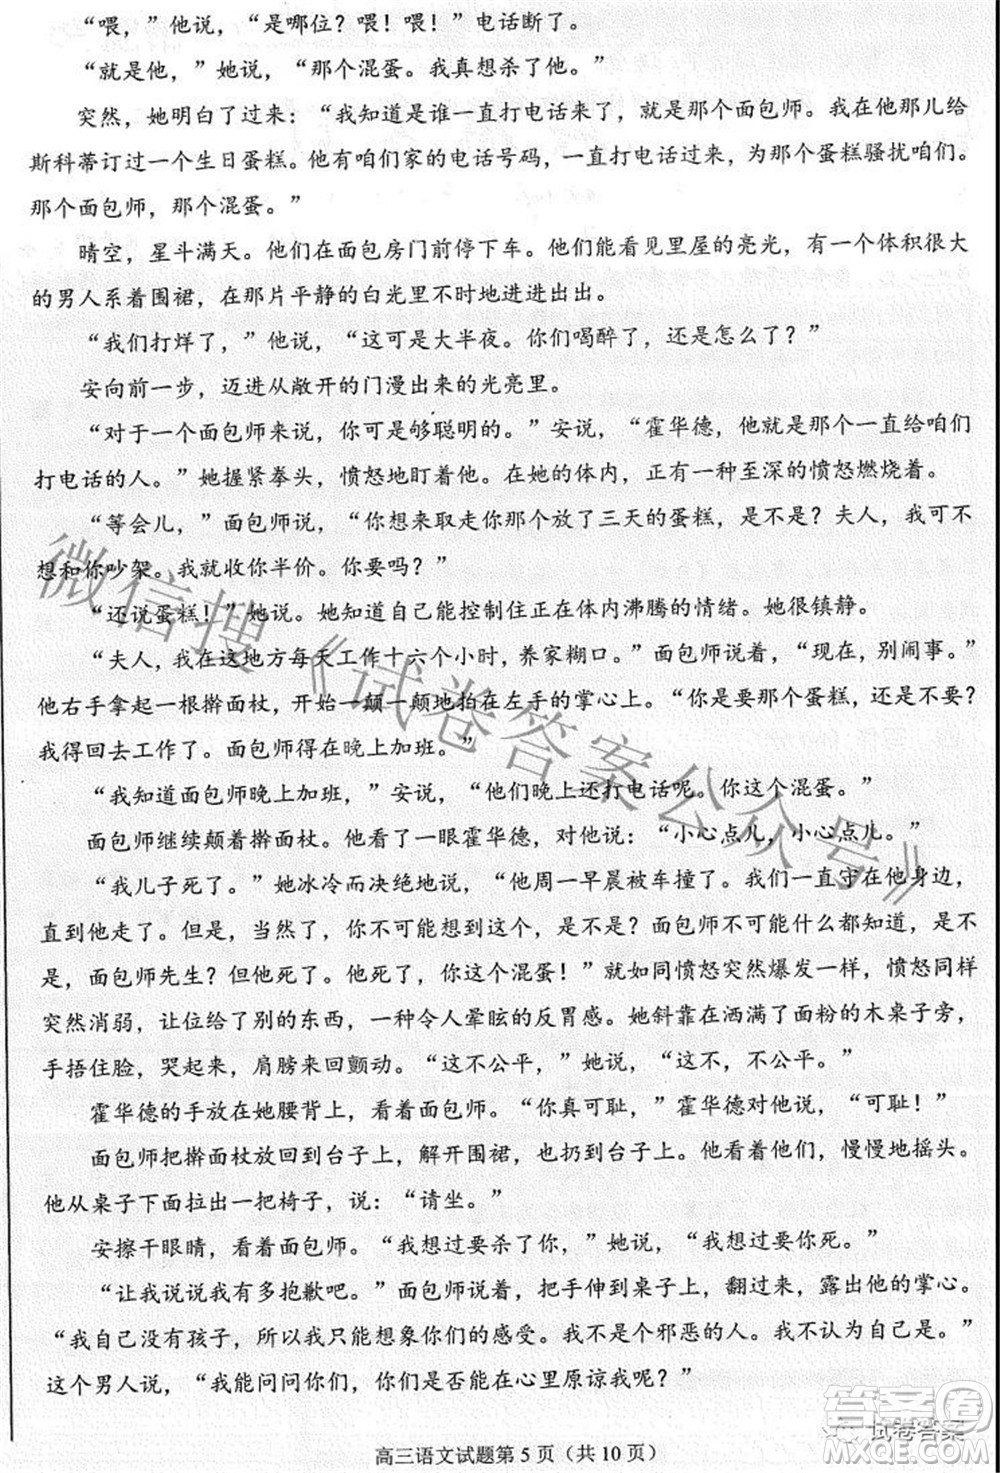 “喂，”他说，“是哪位？喂！喂！”电话断了。
“就是他，”她说，“那个混蛋。我真想杀了他。”
突然，她明白了过来：“我知道是谁一直打电话来了，就是那个面包师。我在他那儿给
斯科蒂订过一个生日蛋糕。他有咱们家的电话号码，一直打电话过来，为那个蛋糕骚扰咱们。
那个面包师，那个混蛋。”
晴空，星斗满天。他们在面包房门前停下车。他们能看见里屋的亮光，有一个体积很大
的男人系着围裙，在那片平静的白光里不时地进进出出。
“我们打烊了，”他说，“这可是大半夜。你们喝醉了，还是怎么了？”
安向前一步，迈进从敞开的门漫出来的光亮里。
“对于一个面包师来说，你可是够聪明的。”安说，“霍华德，他就是那个一直给咱们
打电话的人。”她握紧拳头，愤怒地盯着他。在她的体内，正有一种至深的愤怒燃烧着。
“等会儿，”面包师说，“你想来取走你那个放了三天的蛋糕，是不是？夫人，我可不
想和你吵架。我就收你半价。你要吗？”
“还说蛋糕！”她说。她知道自己能控制住正在体内沸腾的情绪。她很镇静。
“夫人，我在这地方每天工作十六个小时，养家糊口。”面包师说着，“现在，别闹事。”
他右手拿起一根擀面杖，开始一颠一颠地拍在左手的掌心上。“你是要那个蛋糕，还是不要？
我得回去工作了。面包师得在晚上加班。”
“我知道面包师晚上加班，”安说，“他们晚上还打电话呢。你这个混蛋。”
面包师继续颠着擀面杖。他看了一眼霍华德，对他说：“小心点儿，小心点儿。”
“我儿子死了。”她冰冷而决绝地说，“他周一早晨被车撞了。我们一直守在他身边，
直到他走了。但是，当然了，你不可能想到会这样，是吧？面包师不可能什么都知道，是不
是，面包师先生？但他死了。他死了，你这个混蛋！”就如同愤怒突然爆发一样，愤怒同样
突然消弱，让位给了别的东西，一种令人晕眩的反胃感。她斜靠在洒满了面粉的木桌子旁，
手捂住脸，哭起来，肩膀来回颤动。“这不公平，”她说，“这不，不公平。”
霍华德的手放在她腰背上，看着面包师。“你真可耻，”霍华德对他说，“可耻！”
面包师把擀面杖放回到台子上，解开围裙，也扔到台子上。他看着他们，慢慢地摇头。
他从桌子下面拉出一把椅子，说：“请坐。”
安擦干眼睛，看着面包师。“我想过要杀了你，”她说，“我想过要你死。”
“让我说说我有多抱歉吧。”面包师说着，把手伸到桌子上，翻过来，露出他的掌心。
“我自己没有孩子，所以我只能想象你们的感受。我不是个邪恶的人。我不认为自己是。”
这个男人说，“我能问问你们，你们是否能在心里原谅我呢？”
高三语文试题第 5 页（共 10 页）
微信搜《试卷答案公众号》
答案圈
试卷答案